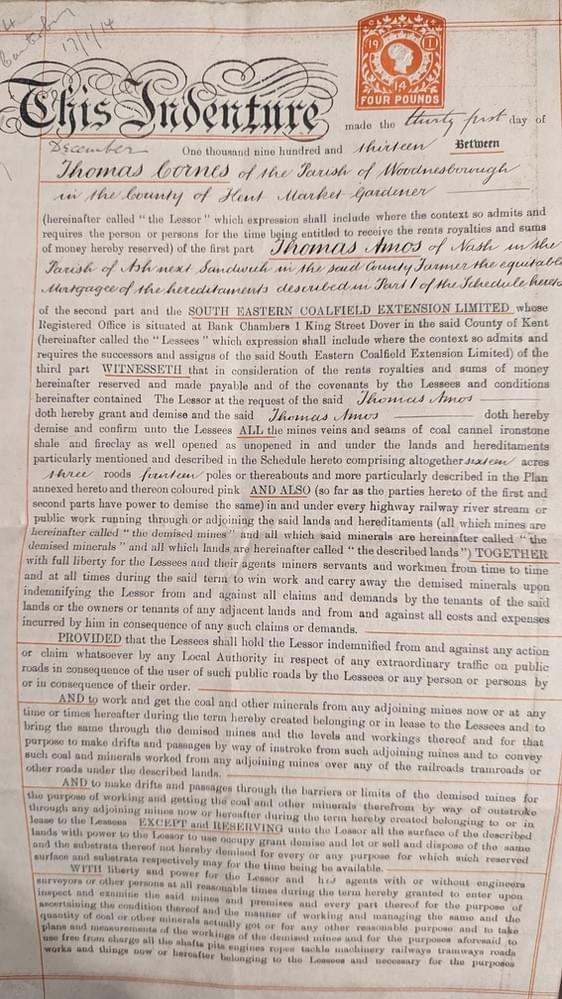 Canterbury
17/1/14
19 11
14
FOUR POUNDS
This Indenture made the thirty first day of
December One thousand nine hundred and thirteen Between
Thomas Cornes of the Parish of Woodnesborough
in the County of Kent Market Gardener
(hereinafter called "the Lessor" which expression shall include where the context so admits and
requires the person or persons for the time being entitled to receive the rents royalties and sums
of money hereby reserved) of the first part Thomas Amos of Nash in the
Parish of Ash next Sandwich in the said County Farmer the equitable
Mortgagee of the hereditaments described in Part 1 of the Schedule hereto
of the second part and the SOUTH EASTERN COALFIELD EXTENSION LIMITED whose
Registered Office is situated at Bank Chambers 1 King Street Dover in the said County of Kent
(hereinafter called the "Lessees" which expression shall include where the context so admits and
requires the successors and assigns of the said South Eastern Coalfield Extension Limited) of the
third part WITNESSETH that in consideration of the rents royalties and sums of money
hereinafter reserved and made payable and of the covenants by the Lessees and conditions
hereinafter contained The Lessor at the request of the said Thomas Amos
doth hereby grant and demise and the said Thomas Amos doth hereby
demise and confirm unto the Lessees ALL the mines veins and seams of coal cannel ironstone
shale and fireclay as well opened as unopened in and under the lands and hereditaments
particularly mentioned and described in the Schedule hereto comprising altogether sixteen acres
three roods fourteen poles or thereabouts and more particularly described in the Plan
annexed hereto and thereon coloured pink AND ALSO (so far as the parties hereto of the first and
second parts have power to demise the same) in and under every highway railway river stream or
public work running through or adjoining the said lands and hereditaments (all which mines are
hereinafter called "the demised mines" and all which said minerals are hereinafter called "the
demised minerals" and all which lands are hereinafter called "the described lands") TOGETHER
with full liberty for the Lessees and their agents miners servants and workmen from time to time
and at all times during the said term to win work and carry away the demised minerals upon
indemnifying the Lessor from and against all claims and demands by the tenants of the said
lands or the owners or tenants of any adjacent lands and from and against all costs and expenses
incurred by him in consequence of any such claims or demands.
PROVIDED that the Lessees shall hold the Lessor indemnified from and against any action
or claim whatsoever by any Local Authority in respect of any extraordinary traffic on public
roads in consequence of the user of such public roads by the Lessees or any person or persons by
or in consequence of their order.
AND to work and get the coal and other minerals from any adjoining mines now or at any
time or times hereafter during the term hereby created belonging to or in lease to the Lessees and to
bring the same through the demised mines and the levels and workings thereof and for that
purpose to make drifts and passages by way of instroke from such adjoining mines and to convey
such coal and minerals worked from any adjoining mines over any of the railroads tramroads or
other roads under the described lands.
AND to make drifts and passages through the barriers or limits of the demised mines for
the purpose of working and getting the coal and other minerals therefrom by way of outstroke
through any adjoining mines now or hereafter during the term hereby created belonging to or in
lease to the Lessees EXCEPT and RESERVING unto the Lessor all the surface of the described
lands with power to the Lessor to use occupy grant demise and let or sell and dispose of the same
and the substrata thereof not hereby demised for every or any purpose for which such reserved
surface and substrata respectively may for the time being be available.
WITH liberty and power for the Lessor and his agents with or without engineers
surveyors or other persons at all reasonable times during the term hereby granted to enter upon
inspect and examine the said mines and premises and every part thereof for the purpose of
ascertaining the condition thereof and the manner of working and managing the same and the
quantity of coal or other minerals actually got or for any other reasonable purpose and to take
plans and measurements of the workings of the demised mines and for the purposes aforesaid to
use free from charge all the shafts pits engines ropes tackle machinery railways tramways roads
works and things now or hereafter belonging to the Lessees and necessary for the purposes